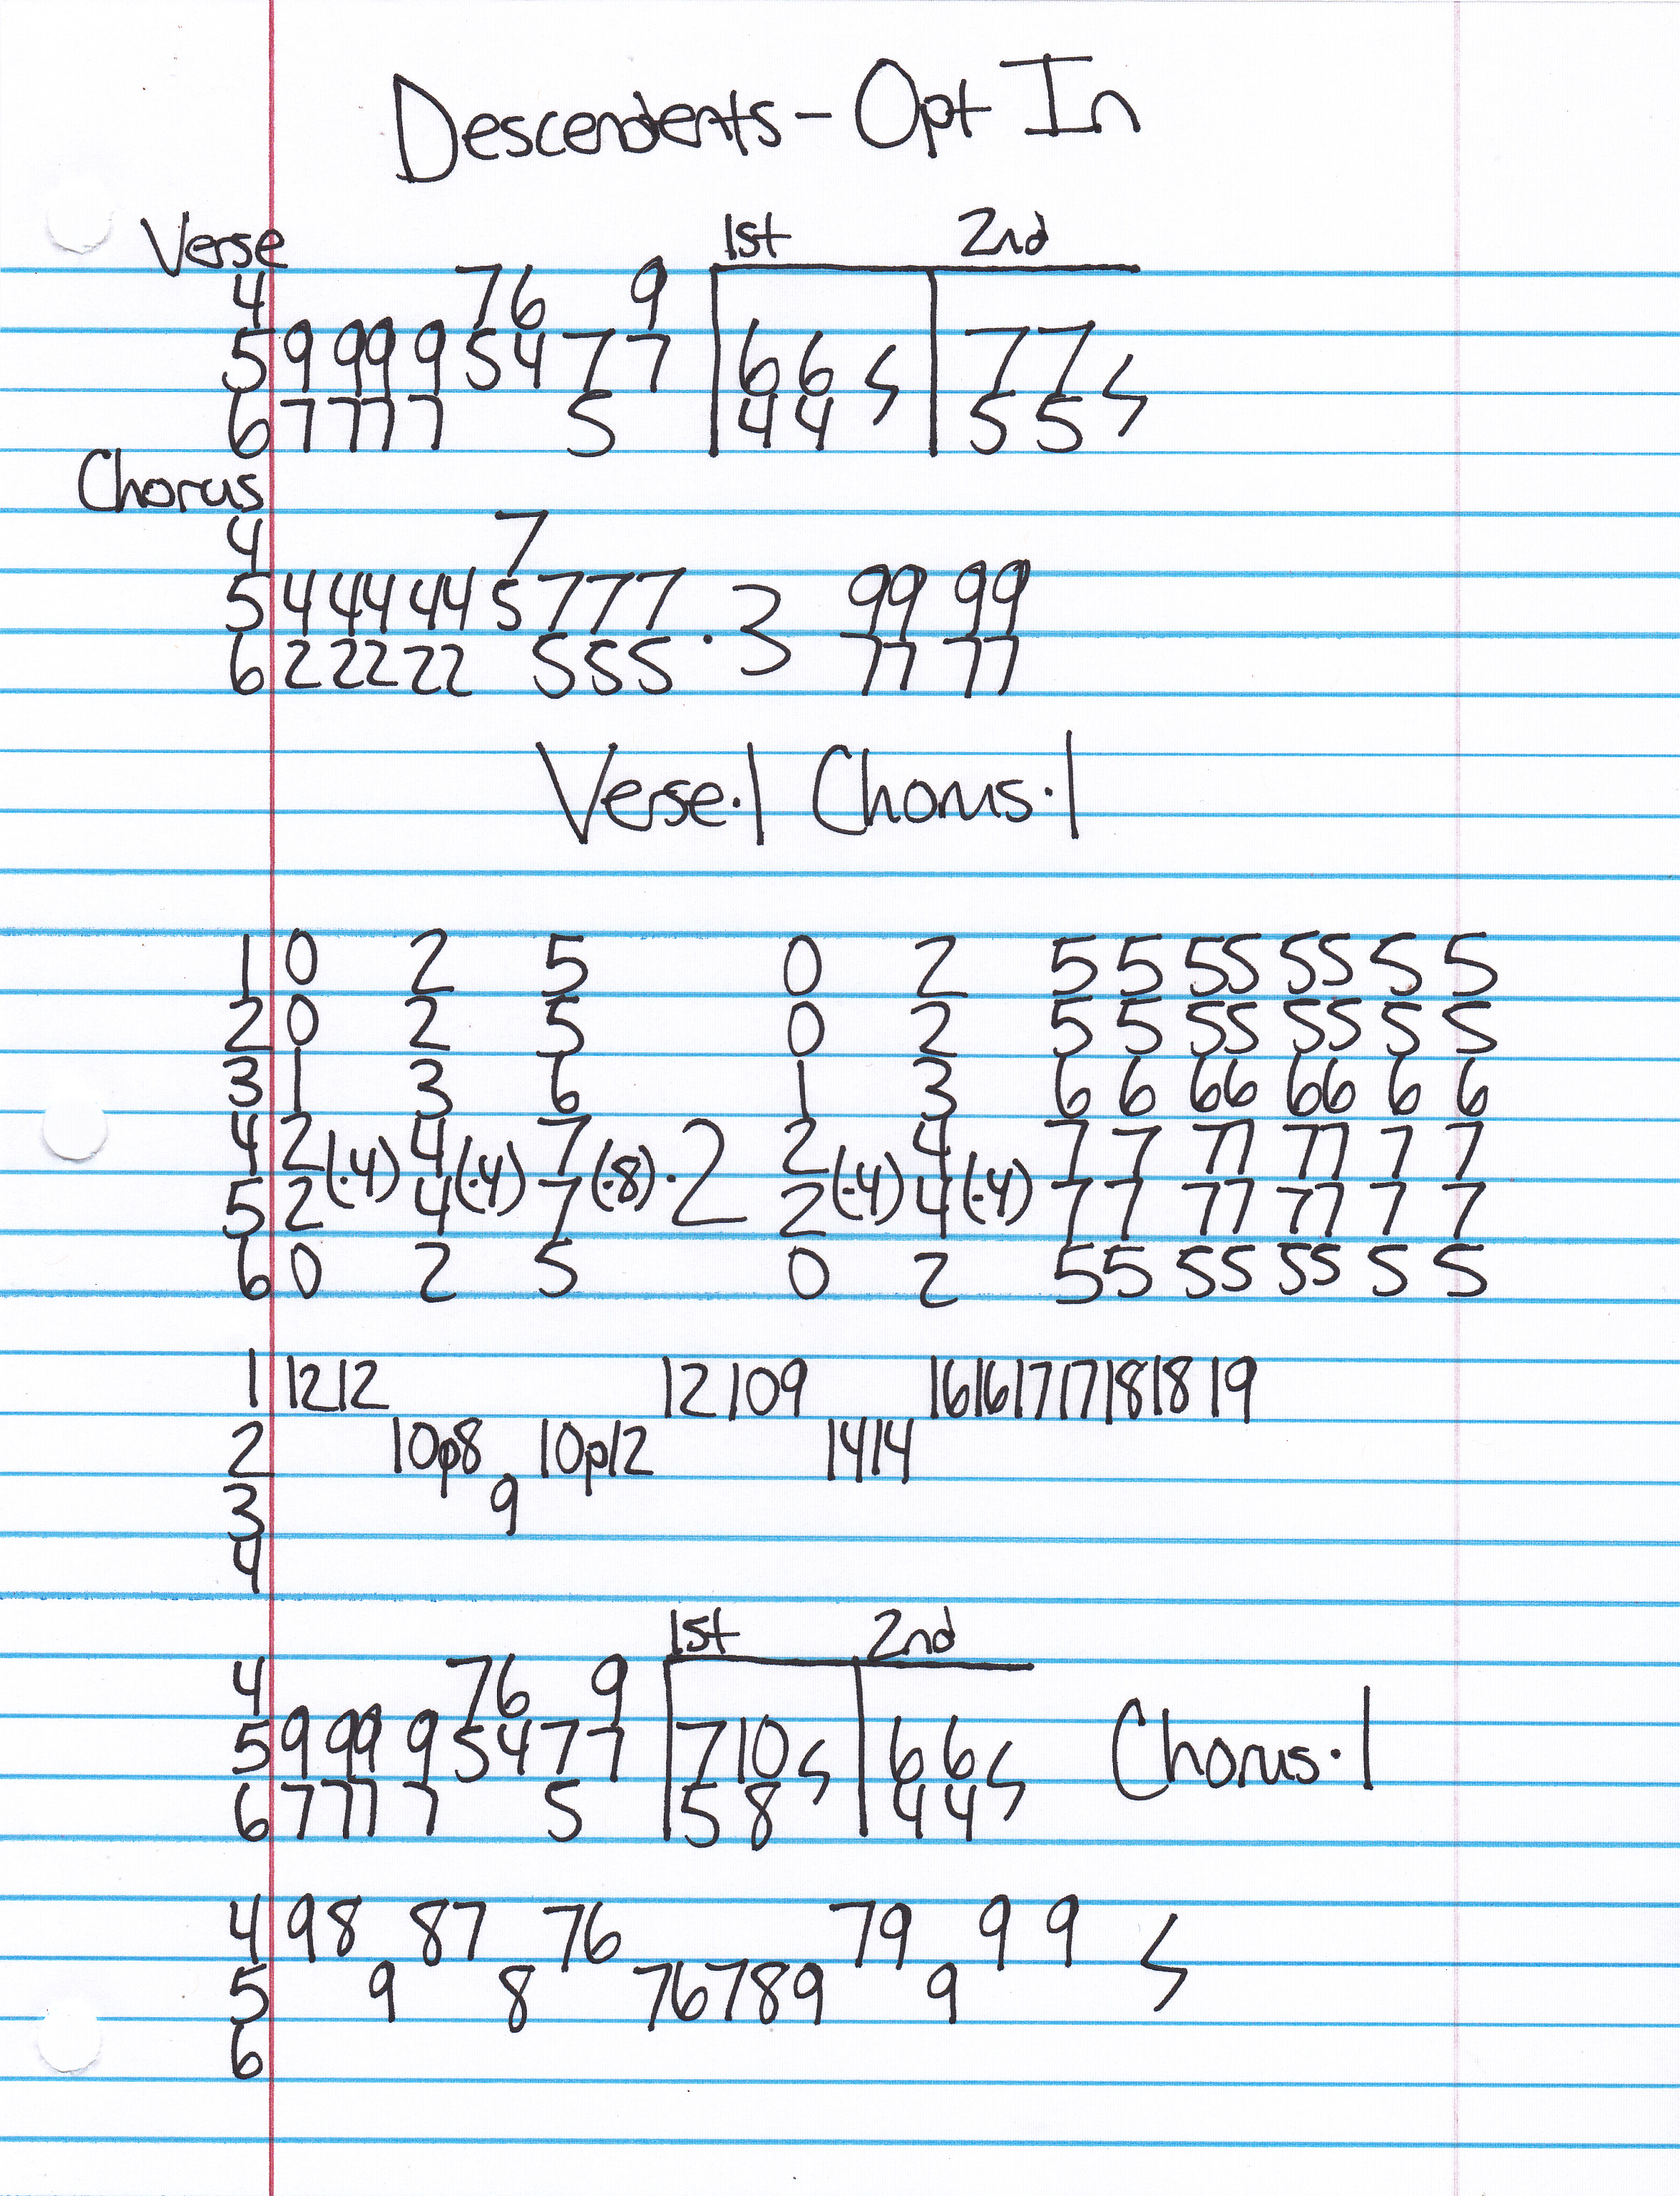 Descendents - Opt In
Verse 1st 2nd
4 7 6 9
5 9 9 9 9 5 4 7 7 6 6 7 7
6 7 7 7 7 5 4 4 5 5
Chorus
4 7
5 4 4 4 4 4 5 7 7 7 · 3 9 9 9 9
6 2 2 2 2 2 5 5 5 7 7 7 7
Verse·1 Chorus·1
1 0 2 5 0 2 5 5 5 5 5 5 5 5
2 0 2 5 0 2 5 5 5 5 5 5 5 5
3 1 3 6 1 3 6 6 6 6 6 6 6 6
4 2 (·4) 4 (·4) 7 (·8) · 2 2 (·4) 4 (·4) 7 7 7 7 7 7 7 7
5 2 4 7 2 4 7 7 7 7 7 7 7 7
6 0 2 5 0 2 5 5 5 5 5 5 5 5
1 12 12 12 10 9 16 16 17 17 18 18 19
2 10p8 10p12 14 14
3 9
4
1st 2nd
4 7 6 9
5 9 9 9 9 5 4 7 7 7 10 6 6 Chorus·1
6 7 7 7 7 5 5 8 4 4
4 9 8 8 7 7 6 7 9 9 9
5 9 8 7 6 7 8 9 9
6